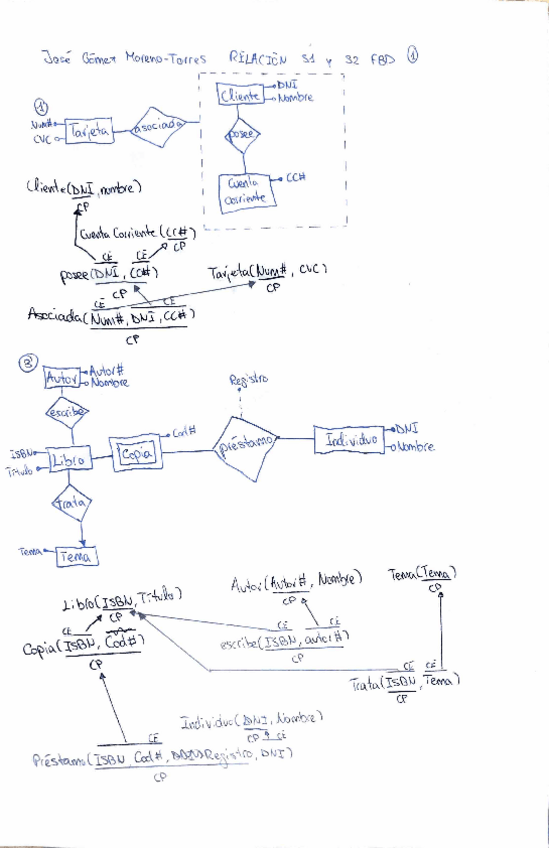 José Gómez Moreno-Torres RELACIÓN S1 y S2 FBD 1
1
DNI
Cliente
Nombre
Num#
Tarjeta
asociada
CVC
posee
Cuenta
Corriente
CC#
Cliente(DNI, nombre)
CP
Cuenta Corriente (CC#)
CP
CE CE
posee(DNI, CC#)
CP
Tarjeta(Num#, CVC)
CP
CE CE
Asociada(Num#, DNI, CC#)
CP
3
Autor
Autor#
Nombre
Registro
escribe
ISBN
Título
Libro
Copia
Cod#
préstamo
Individuo
DNI
Nombre
trata
Tema
Tema
Libro(ISBN, Título)
CP
Autor(Autor#, Nombre)
CP
Tema(Tema)
CP
CE
Copia(ISBN, Cod#)
CP
CE CE
escribe(ISBN, autor#)
CP
CE CE
Trata(ISBN, Tema)
CP
Individuo(DNI, Nombre)
CP CE
CE
Préstamo(ISBN, Cod#, Registro, DNI)
CP